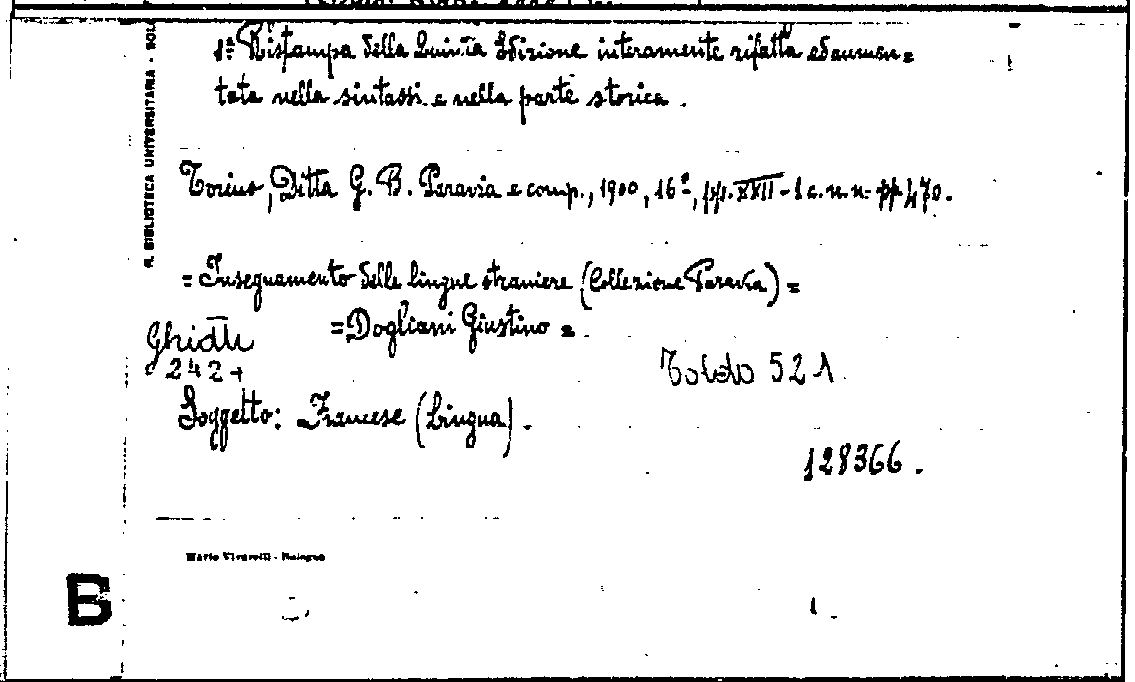 1ª Ristampa della Quinta Edizione interamente rifatta ed aumen=
tata nella sintassi e nella parte storica.
R. BIBLIOTECA UNIVERSITARIA - BOL
Torino, Ditta G. B. Paravia e comp., 1900, 16º, pp. XXII - 1 c. n. n. - pp 470.
= Insegnamento delle lingue straniere (Collezione Paravia) =
= Dogliani Giustino =.
2424
Toldo 521
Soggetto: Francese (Lingua).
128366.
Mario Vivarelli - Bologna
B